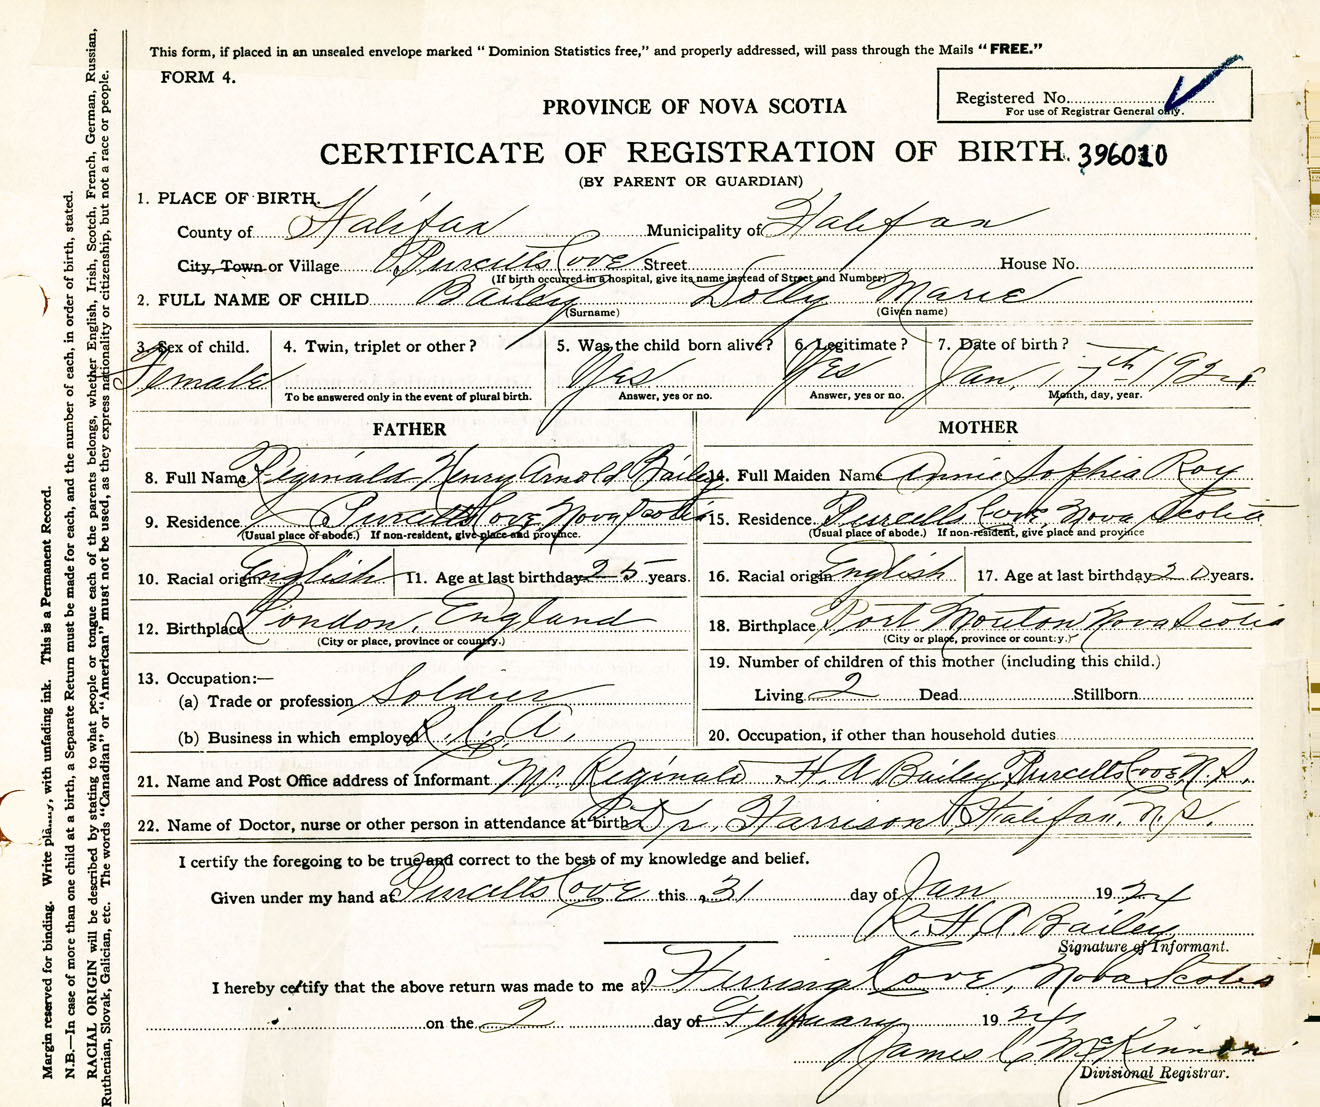 This form, if placed in an unsealed envelope marked "Dominion Statistics free," and properly addressed, will pass through the Mails "FREE."
FORM 4.
Registered No.
For use of Registrar General only.
PROVINCE OF NOVA SCOTIA
CERTIFICATE OF REGISTRATION OF BIRTH. 396010
(BY PARENT OR GUARDIAN)
1. PLACE OF BIRTH.
County of Halifax Municipality of Halifax
City, Town or Village Purcell's Cove Street House No.
(If birth occurred in a hospital, give its name instead of Street and Number)
2. FULL NAME OF CHILD Bailey Dolly Marie
(Surname) (Given name)
3. Sex of child. 4. Twin, triplet or other? 5. Was the child born alive? 6. Legitimate? 7. Date of birth?
Female Yes Yes Jan. 17th 1924
To be answered only in the event of plural birth. Answer, yes or no. Answer, yes or no. Month, day, year.
FATHER
8. Full Name Reginald Henry Arnold Bailey
9. Residence Purcells Cove Nova Scotia
(Usual place of abode.) If non-resident, give place and province.
10. Racial origin English 11. Age at last birthday 25 years.
12. Birthplace London, England
(City or place, province or country.)
13. Occupation:—
(a) Trade or profession Soldier
(b) Business in which employed R.C.A.
MOTHER
14. Full Maiden Name Annie Sophia Roy
15. Residence Purcells Cove, Nova Scotia
(Usual place of abode.) If non-resident, give place and province
16. Racial origin English 17. Age at last birthday 20 years.
18. Birthplace Port Mouton Nova Scotia
(City or place, province or country.)
19. Number of children of this mother (including this child.)
Living 2 Dead Stillborn
20. Occupation, if other than household duties
21. Name and Post Office address of Informant Mr Reginald H A Bailey, Purcells Cove N.S.
22. Name of Doctor, nurse or other person in attendance at birth Dr. Harrison, Halifax. N.S.
I certify the foregoing to be true and correct to the best of my knowledge and belief.
Given under my hand at Purcells Cove this 31 day of Jan 1924
R. H. A. Bailey
Signature of Informant.
I hereby certify that the above return was made to me at Herring Cove, Nova Scotia
on the 2 day of February 1924
James C McKinnon
Divisional Registrar.
Margin reserved for binding. Write plainly, with unfading ink. This is a Permanent Record.
N.B.—In case of more than one child at a birth, a Separate Return must be made for each, and the number of each, in order of birth, stated.
RACIAL ORIGIN will be described by stating to what people or tongue each of the parents belongs, whether English, Irish, Scotch, French, German, Russian,
Ruthenian, Slovak, Galician, etc. The words "Canadian" or "American" must not be used, as they express nationality or citizenship, but not a race or people.